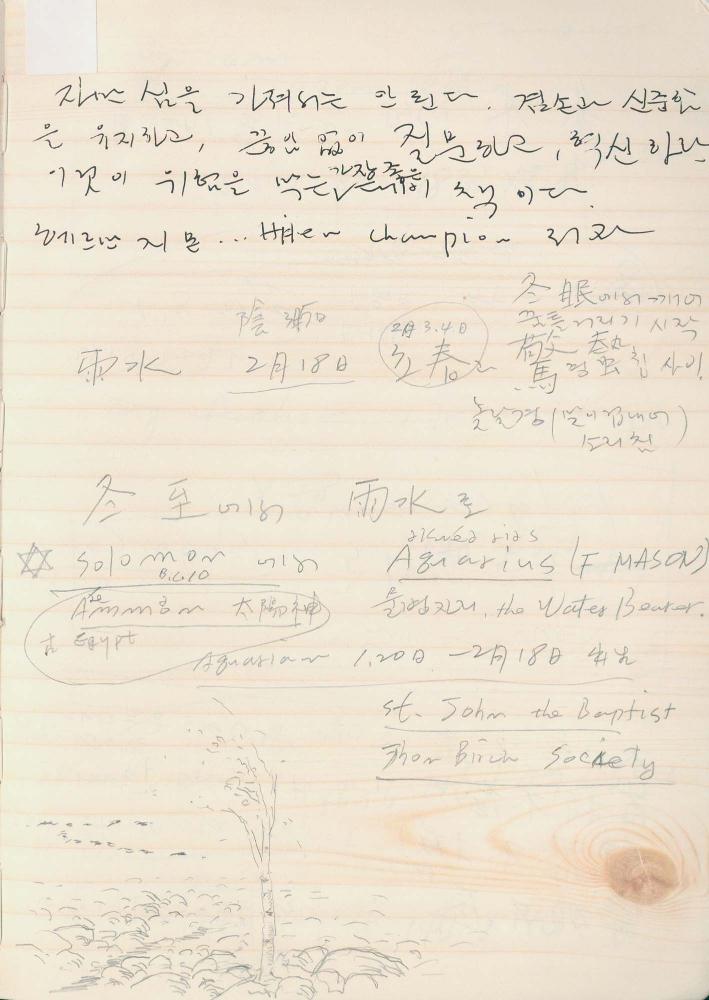 자만심을 가져서는 안된다. 겸손과 신중함
을 유지하고, 끊임없이 질문하고, 혁신하라
이것이 위험을 막는 가장 좋은 책이다.
헤르만 지몬... Hidden champion 저자
冬眠에서 깨어
꿈틀거리기 시작
陰曆
2月 3.4日
雨水 2月18日 立春과
驚蟄 사이.
놀랄 경
소리침
冬至에서 雨水로
Solomon 에서
B.C.10
Aquarius (F MASON)
太陽神
물병자리. the Water Bearer.
古 Egypt
Aquarian 1.20日 - 2月18日 生
St. John the Baptist
Jhon Birch Society